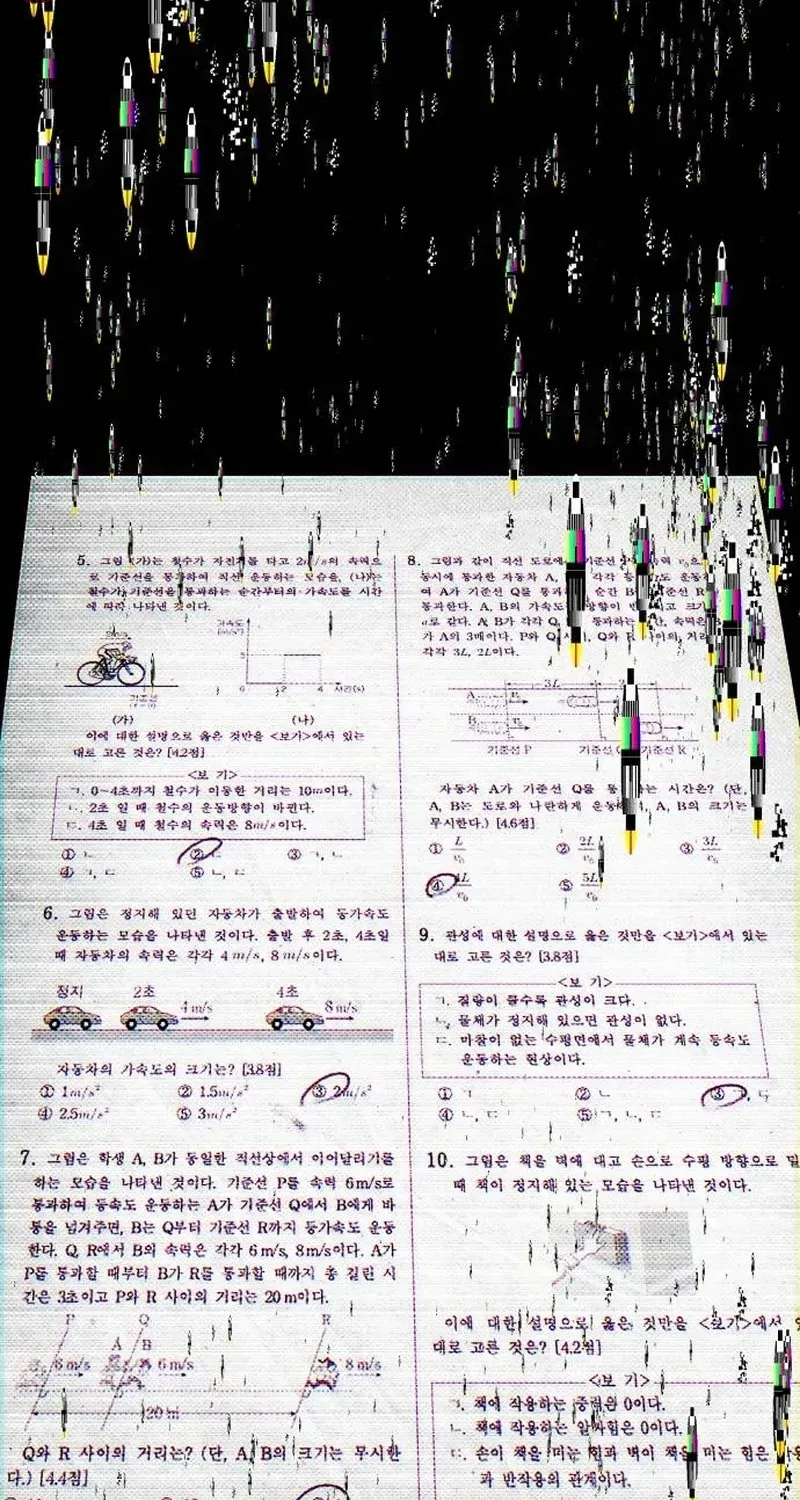 5. 그림 (가)는 철수가 자전거를 타고 2m/s의 속력으
로 기준선을 통과하여 직선 운동하는 모습을, (나)는
철수가 기준선을 통과하는 순간부터의 가속도를 시간
에 따라 나타낸 것이다.
가속도
(m/s²)
0 2 4 시간(s)
기준선
(가) (나)
이에 대한 설명으로 옳은 것만을 <보기>에서 있는
대로 고른 것은? [4.2점]
<보 기>
ㄱ. 0~4초까지 철수가 이동한 거리는 10m이다.
ㄴ. 2초 일 때 철수의 운동방향이 바뀐다.
ㄷ. 4초 일 때 철수의 속력은 8m/s이다.
① ㄴ ② ㄷ ③ ㄱ, ㄴ
④ ㄱ, ㄷ ⑤ ㄴ, ㄷ
6. 그림은 정지해 있던 자동차가 출발하여 등가속도
운동하는 모습을 나타낸 것이다. 출발 후 2초, 4초일
때 자동차의 속력은 각각 4 m/s, 8 m/s이다.
정지 2초 4초
4 m/s 8 m/s
자동차의 가속도의 크기는? [3.8점]
① 1m/s² ② 1.5m/s² ③ 2m/s²
④ 2.5m/s² ⑤ 3m/s²
7. 그림은 학생 A, B가 동일한 직선상에서 이어달리기를
하는 모습을 나타낸 것이다. 기준선 P를 속력 6m/s로
통과하여 등속도 운동하는 A가 기준선 Q에서 B에게 바
통을 넘겨주면, B는 Q부터 기준선 R까지 등가속도 운동
한다. Q, R에서 B의 속력은 각각 6 m/s, 8m/s이다. A가
P를 통과할 때부터 B가 R를 통과할 때까지 총 걸린 시
간은 3초이고 P와 R 사이의 거리는 20 m이다.
P Q R
A B
6 m/s 6 m/s 8 m/s
20 m
Q와 R 사이의 거리는? (단, A, B의 크기는 무시한
다.) [4.4점]
8. 그림과 같이 직선 도로에 기준선 P를 속력 v₀으
동시에 통과한 자동차 A, 각각 등 도 운동
여 A가 기준선 Q를 통과 순간 B 기준선 R
통과한다. A, B의 가속도 방향이 고 크기
a로 같다. A, B가 각각 Q, 통과하는 간, 속력은 B
가 A의 3배이다. P와 Q 사이, Q와 R 사이의 거리
각각 3L, 2L이다.
3L
A v₀
B v₀
기준선 P 기준선 Q 기준선 R
자동차 A가 기준선 Q를 통 는 시간은? (단,
A, B는 도로와 나란하게 운동 , A, B의 크기는
무시한다.) [4.6점]
① L/v₀ ② 2L/v₀ ③ 3L/v₀
④ 4L/v₀ ⑤ 5L/v₀
9. 관성에 대한 설명으로 옳은 것만을 <보기>에서 있는
대로 고른 것은? [3.8점]
<보 기>
ㄱ. 질량이 클수록 관성이 크다.
ㄴ. 물체가 정지해 있으면 관성이 없다.
ㄷ. 마찰이 없는 수평면에서 물체가 계속 등속도
운동하는 현상이다.
① ㄱ ② ㄴ ③ , ㄷ
④ ㄴ, ㄷ ⑤ ㄱ, ㄴ, ㄷ
10. 그림은 책을 벽에 대고 손으로 수평 방향으로 밀
때 책이 정지해 있는 모습을 나타낸 것이다.
이에 대한 설명으로 옳은 것만을 <보기>에서
대로 고른 것은? [4.2점]
<보 기>
ㄱ. 책에 작용하는 중력은 0이다.
ㄴ. 책에 작용하는 알짜힘은 0이다.
ㄷ. 손이 책을 미는 힘과 벽이 책을 미는 힘은 작용
과 반작용의 관계이다.